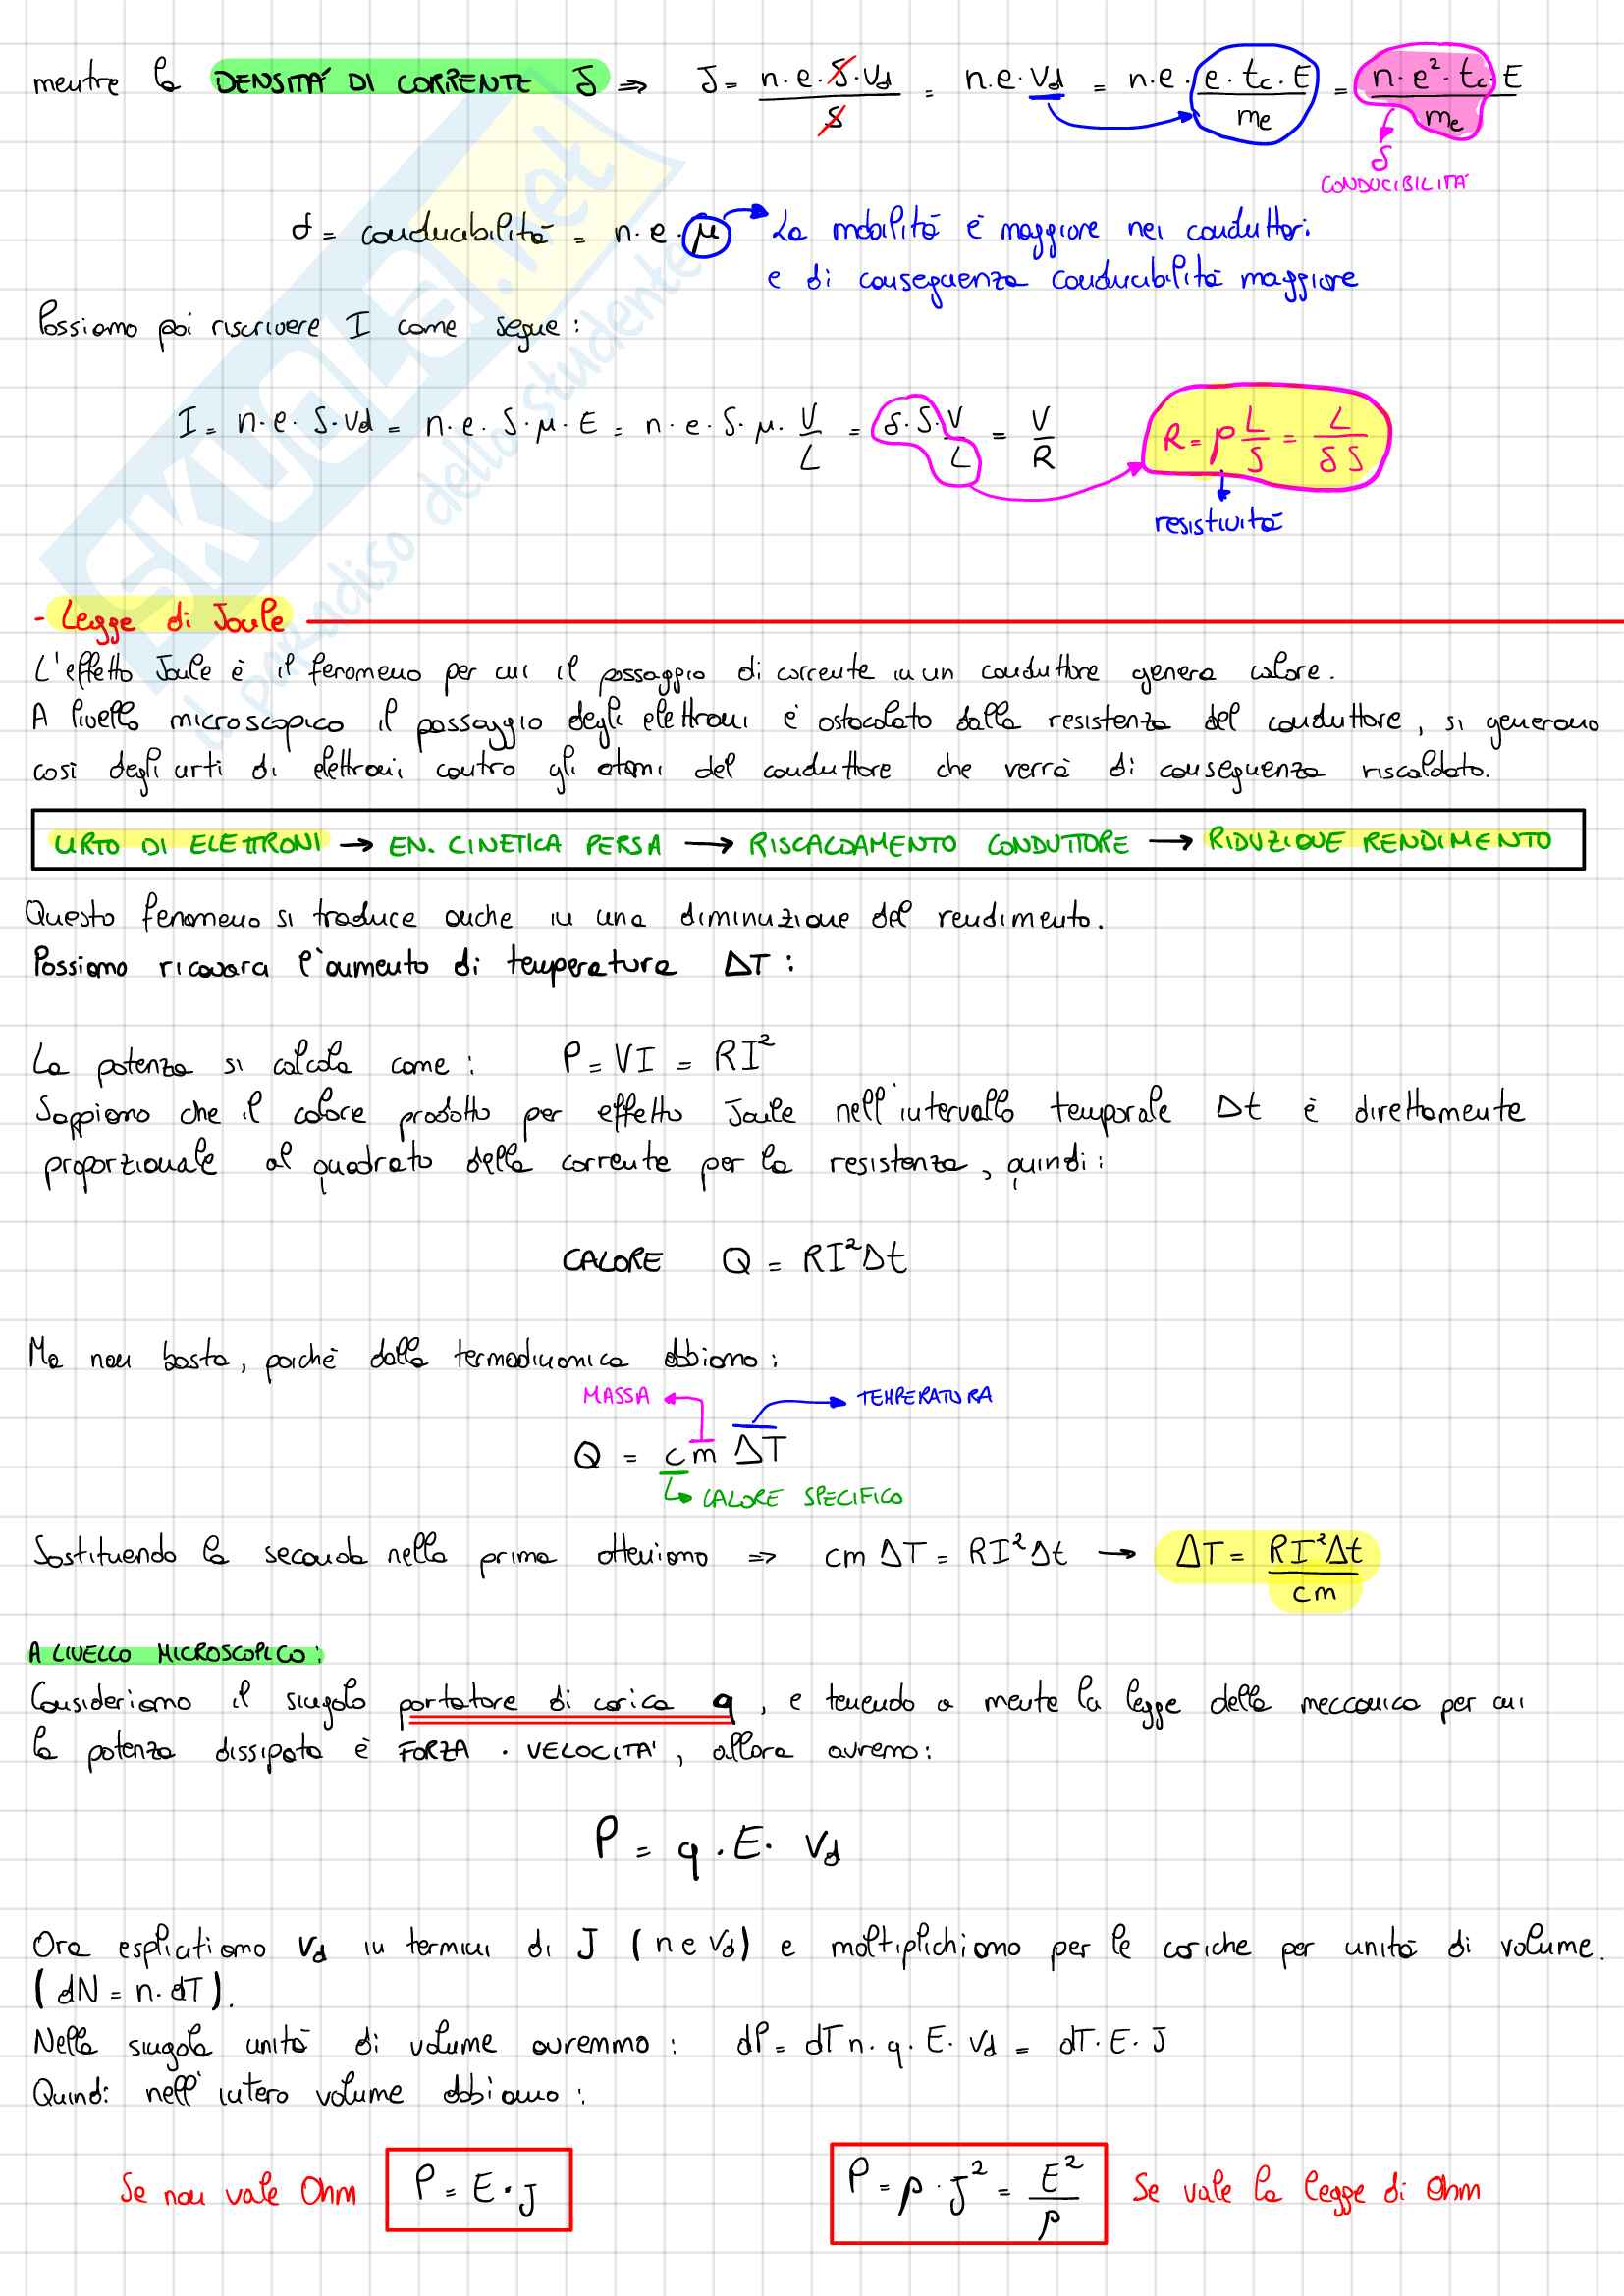 mentre la DENSITA' DI CORRENTE J ⇒ J = n·e·S·vd / S = n·e·vd = n·e· e·tc·E / me = n·e²·tc·E / me
δ
CONDUCIBILITA'
δ = conducibilità = n·e·μ La mobilità è maggiore nei conduttori
e di conseguenza conducibilità maggiore
Possiamo poi riscrivere I come segue:
I = n·e·S·vd = n·e·S·μ·E = n·e·S·μ·V/L = δ·S·V/L = V/R R = ρ L/S = L/δS
resistività
- Legge di Joule
L'effetto Joule è il fenomeno per cui il passaggio di corrente in un conduttore genera calore.
A livello microscopico il passaggio degli elettroni è ostacolato dalla resistenza del conduttore, si generano
così degli urti di elettroni contro gli atomi del conduttore che verrà di conseguenza riscaldato.
URTO DI ELETTRONI → EN. CINETICA PERSA → RISCALDAMENTO CONDUTTORE → RIDUZIONE RENDIMENTO
Questo fenomeno si traduce anche in una diminuzione del rendimento.
Possiamo ricavara l'aumento di temperatura ΔT:
La potenza si calcola come: P = VI = RI²
Sappiamo che il calore prodotto per effetto Joule nell'intervallo temporale Δt è direttamente
proporzionale al quadrato della corrente per la resistenza, quindi:
CALORE Q = RI²Δt
Ma non basta, poichè dalla termodinamica abbiamo:
MASSA TEMPERATURA
Q = cm ΔT
CALORE SPECIFICO
Sostituendo la seconda nella prima otteniamo ⇒ cm ΔT = RI²Δt → ΔT = RI²Δt / cm
A LIVELLO MICROSCOPICO:
Consideriamo il singolo portatore di carica q, e tenendo a mente la legge della meccanica per cui
la potenza dissipata è FORZA · VELOCITA', allora avremo:
P = q·E·vd
Ora esplicitiamo vd in termini di J (n e vd) e moltiplichiamo per le cariche per unità di volume.
(dN = n·dT).
Nella singola unità di volume avremmo: dP = dT n·q·E·vd = dT·E·J
Quindi nell'intero volume abbiamo:
Se non vale Ohm P = E·J P = ρ·J² = E²/ρ Se vale la legge di Ohm
SKUOLA.net
il paradiso dello studente